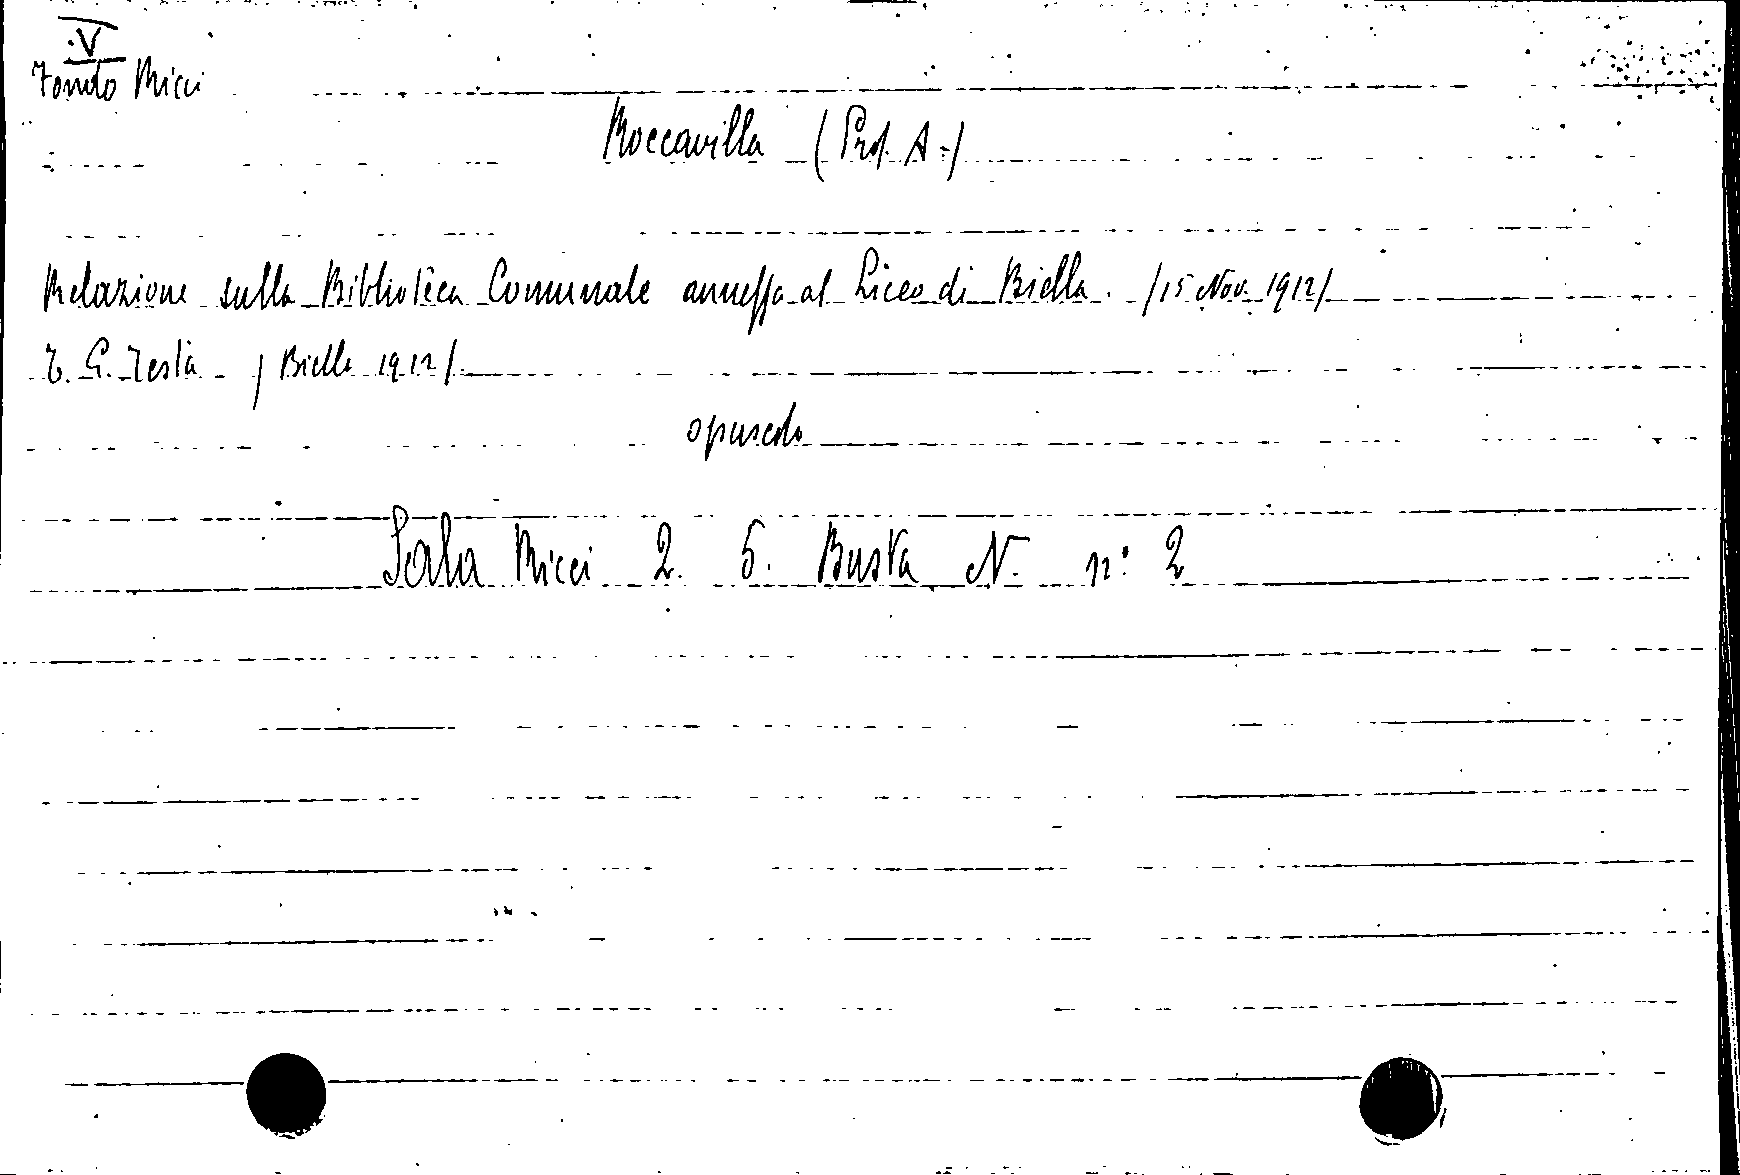 V
Fondo Ricci
Roccavilla (Prof. A.)
Relazione sulla Biblioteca Comunale annessa al Liceo di Biella. (15 Nov. 1912)
T. G. Testa (Biella 1912)
opuscolo
Sala Ricci 2. 5. Busta N. n: 2